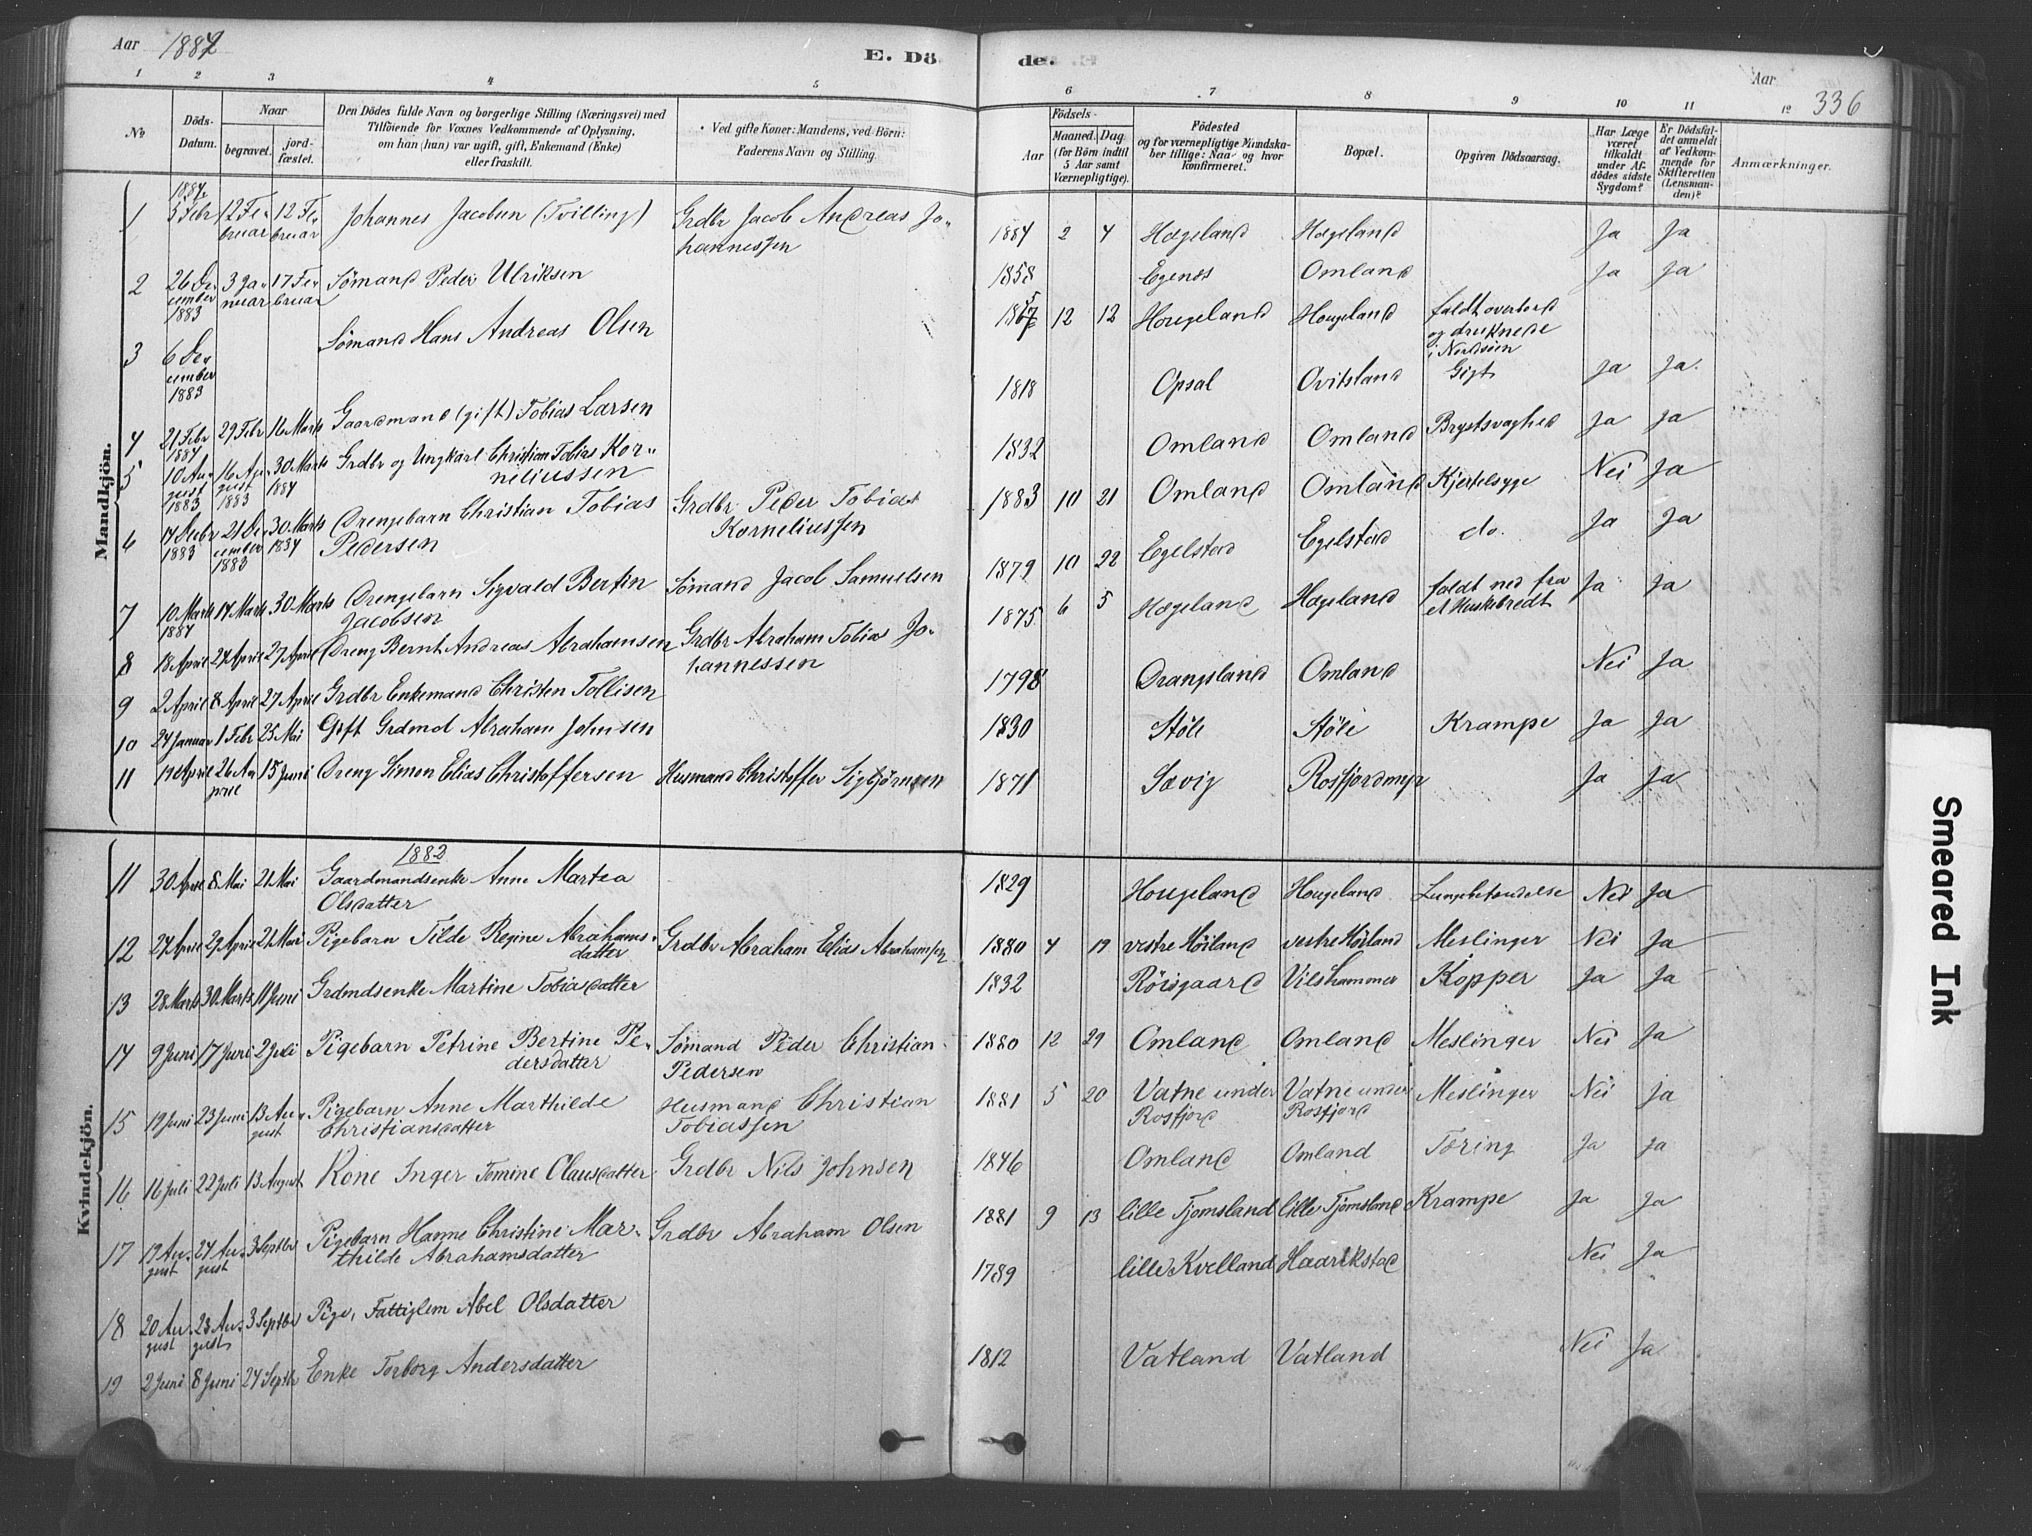 Aar 1882
E. Dö de.
Aar
336
1 2 3 4 5 6 7 8 9 10 11 12
No
Döds-
Datum.
Naar
begravet.
jord-
fæstet.
Den Dödes fulde Navn og borgerlige Stilling (Næringsvei) med
Tilföiende for Voxnes Vedkommende af Oplysning,
om han (hun) var ugift, gift, Enkemand (Enke)
eller fraskilt.
Ved gifte Koner: Mandens, ved Börn:
Faderens Navn og Stilling
Födsels-
Aar
Maaned. Dag
(for Börn indtil
5 Aar samt
Værnepligtige).
Födested
og for værnepligtige Mandska-
ber tillige: Naar og hvor
konfirmeret.
Bopæl.
Opgiven Dödsaarsag.
Har Læge
været
tilkaldt
under Af-
dödes sidste
Sygdom?
Er Dödsfal-
det anmeldt
af Vedkom-
mende for
Skifteretten
(Lensman-
den)?
Anmærkninger.
Mandkjön.
1884
1 5 Febr 12 Fe- 12 Fe- Johannes Jacobsen (Tvilling) Grdbr Jacob Andreas Jo- 1884 2 4 Hægeland Hægeland Ja Ja
bruar bruar hannessen
2 26 De- 3 Ja- 17 Fe- Sømand Peder Ulriksen 1858 Egenæs Omland Ja Ja
cember nuar bruar
1883
3 6 De- Sømand Hans Andreas Olsen 12 12 Hougeland Hougeland faldt overbord
cember og druknede
1883 i Nordsøen
4 21 Febr 29 Febr 16 Marts Gaardmand (gift) Tobias Larsen 1818 Opsal Ovitsland Gigt Ja Ja
1884
5 10 Au- 16 Au- 30 Marts Grdbr og Ungkarl Christian Tobias Kor- 1832 Omland Omland Brystsvaghed Ja Ja
gust gust 1884 neliussen
1883 1883
6 14 Decbr 21 De- 30 Marts Drengebarn Christian Tobias Grdbr Peder Tobias 1883 10 21 Omland Omland Kjertelsyge Nei Ja
1883 cember 1884 Pedersen Korneliussen
1883
7 10 Marts 14 Marts 30 Marts Drengebarn Sigvald Bertin Sømand Jacob Samuelsen 1879 10 22 Egelstad Egelstad do. Ja Ja
1884 Jacobsen
8 18 April 24 April 27 April Dreng Bernt Andreas Abrahamsen Grdbr Abraham Tobias Jo- 1875 6 5 Hægeland Hægeland faldt ned fra Ja Ja
hannessen et Huskebredt
9 2 April 8 April 27 April Grdbr Enkemand Christen Tollisen 1798 Drangsland Omland Nei Ja
10 24 Januar 1 Febr 25 Mai Gift Grdmd Abraham Johnsen 1830 Støle Støle Krampe Ja Ja
11 19 April 26 A- 15 Juni Dreng Simon Elias Christoffersen Husmand Christoffer Sigbjørnsen 1871 Sævig Rosfjordmyr Ja Ja
pril
Kvindekjön.
1882
11 30 April 8 Mai 21 Mai Gaardmandsenke Anne Martea 1829 Hougeland Hougeland Lungebetændelse Nei Ja
Olsdatter
12 24 April 29 April 21 Mai Pigebarn Tilde Regine Abrahams- Grdbr Abraham Elias Abrahamsen 1880 4 19 vestre Høiland vestre Høiland Meslinger Nei Ja
datter
13 28 Marts 30 Marts 11 Juni Grdmdsenke Martine Tobiasdatter 1832 Röisgaard Vilshammer Kopper Ja Ja
14 9 Juni 17 Juni 2 Juli Pigebarn Petrine Bertine Pe- Sømand Peder Christian 1880 12 29 Omland Omland Meslinger Nei Ja
dersdatter Pedersen
15 19 Juni 23 Juni 13 Au- Pigebarn Anne Marthilde Husmand Christian 1881 5 20 Vatne under Vatne under Meslinger Nei Ja
gust Christiansdatter Tobiassen Rosfjord Rosfjord
16 16 Juli 22 Juli 13 August Kone Inger Tomine Clausdatter Grdbr Nils Johnsen 1846 Omland Omland Tæring Ja Ja
17 19 Au- 24 Au- 3 Septbr Pigebarn Hanne Christine Mar- Grdbr Abraham Olsen 1881 9 13 lille Tjømsland lille Tjømsland Krampe Ja Ja
gust gust thilde Abrahamsdatter
18 20 Au- 23 Au- 3 Septbr Pige, Fattiglem Abel Olsdatter 1789 lille Kvelland Haarikstad Nei Ja
gust gust
19 2 Juni 8 Juni 24 Septbr Enke Torborg Andersdatter 1812 Vatland Vatland Nei Ja
Smeared Ink